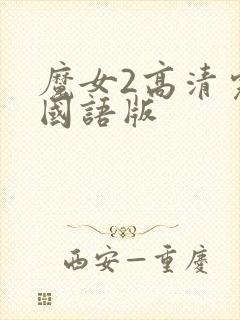 魔女2高清
國語版
西安—重慶